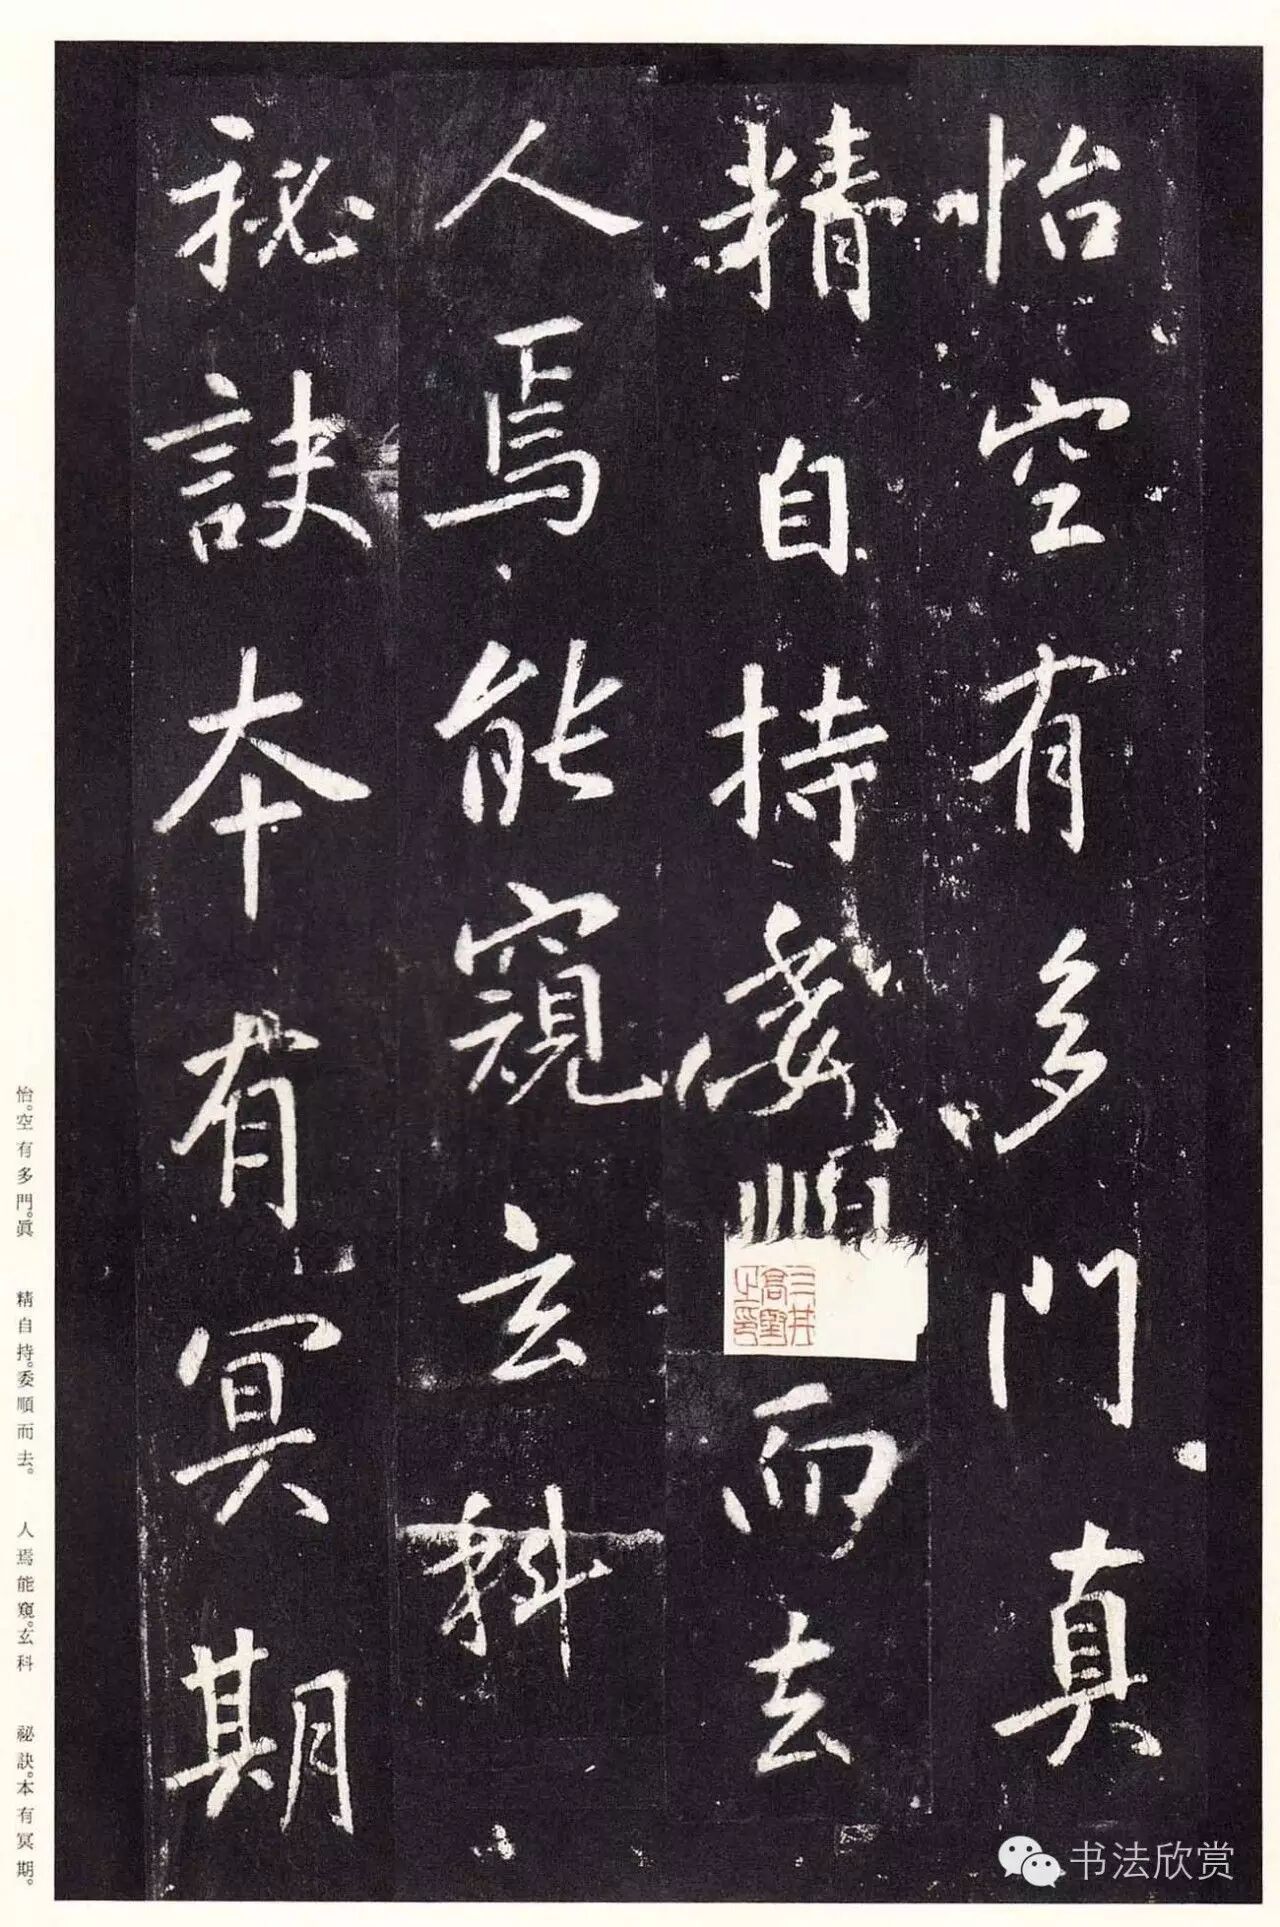 怡空有多門真
精自持委順而去
人焉能窺玄科
祕訣本有冥期
三井
高堅
之印
怡。空有多門。眞　精自持。委順而去。　人焉能窺。玄科　祕訣。本有冥期。
书法欣赏